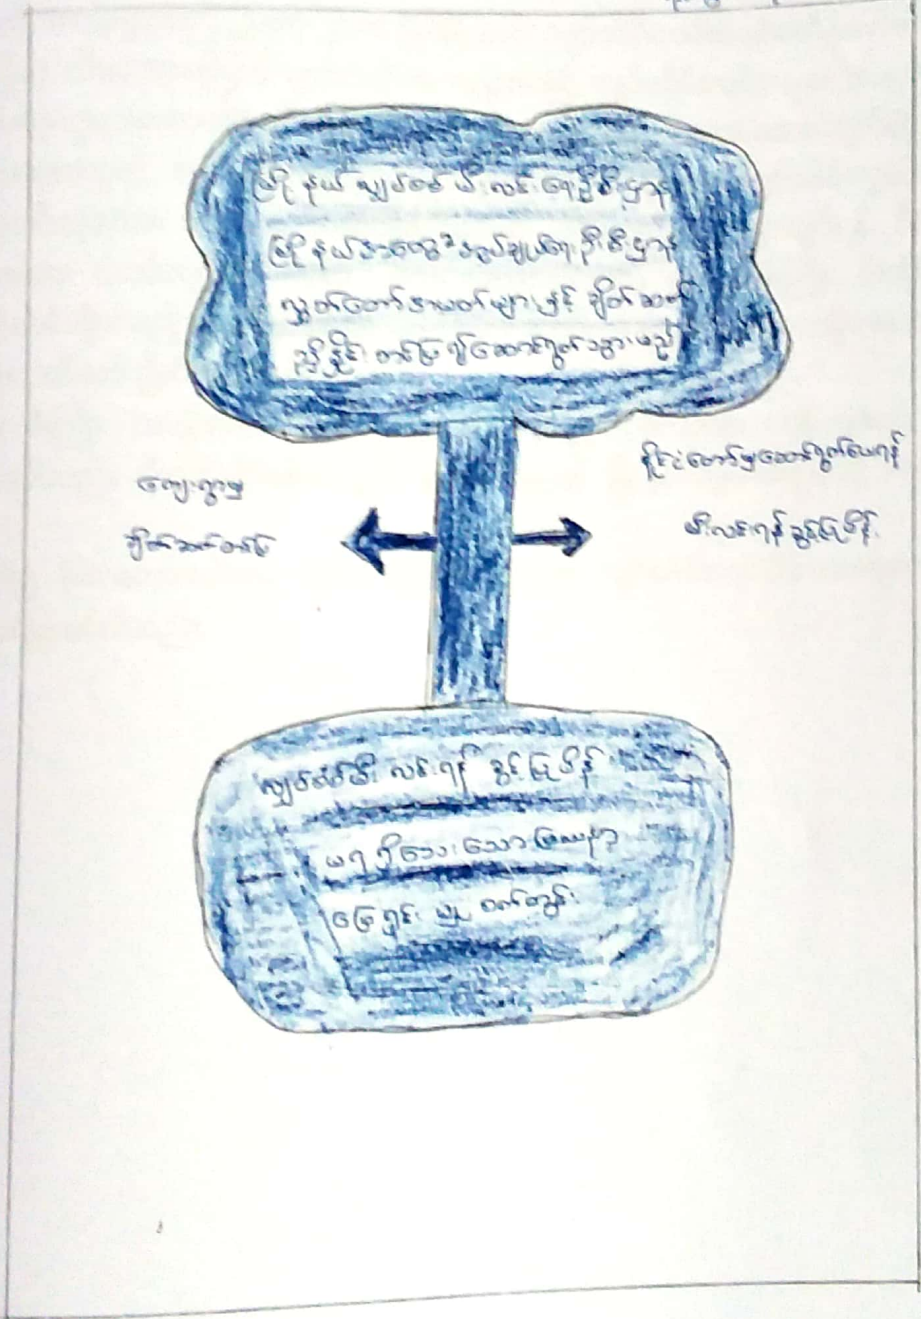 မြို့နယ် လျှပ်စစ် မီးလင်းရေးဦးစီးဌာန
မြို့နယ်အထွေထွေအုပ်ချုပ်ရေးဦးစီးဌာန
လွှတ်တော်အမတ်များနှင့် ချိတ်ဆက်
ညှိနှိုင်း တင်ပြ၍ဆောင်ရွက်သွားမည်
ကျေးရွာမှ
ချိတ်ဆက်တင်ပြ
နိုင်ငံတော်မှဆောင်ရွက်ပေးရန်
မီးလင်းရန်ခွင့်ပြုမိန့်
လျှပ်စစ်မီး လင်းရန် ခွင့်ပြုမိန့်
မရရှိသေးသောပြဿနာ
ဖြေရှင်းမှု